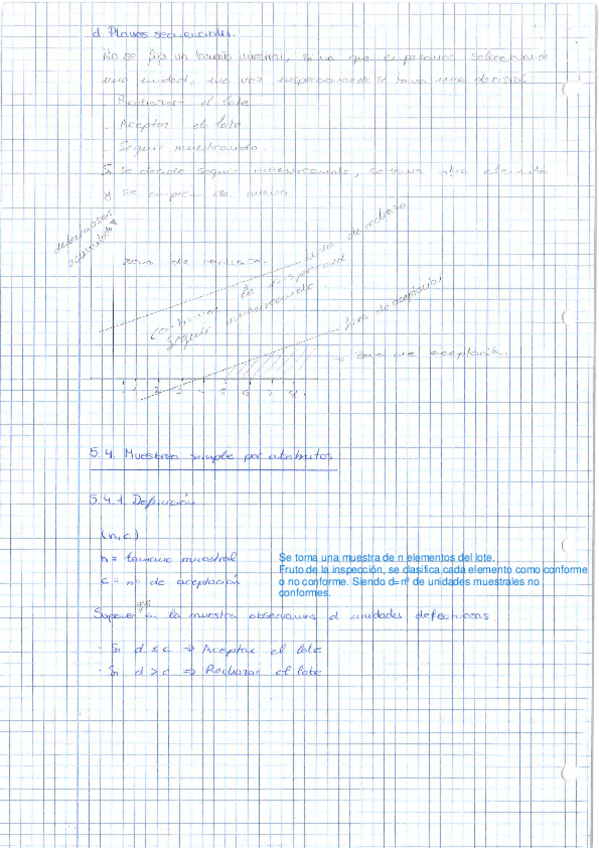 d. Planes secuenciales.
No se fija un tamaño muestral, si no que empezamos seleccionando
una unidad, una vez inspeccionada se toma una decisión
- Rechazar el lote
- Aceptar el lote
- Seguir muestreando.
Si se decide seguir muestreando, se toma otro elemento
y se empieza de nuevo
defectuosos
acumulados
zona de rechazo.
línea de rechazo
continuar la inspección
seguir muestreando.
línea de aceptación
→ zona de aceptación.
1 2 3 4 5 6 7 8
5.4. Muestreo simple por atributos
5.4.1. Definición
(n,c)
n = tamaño muestral
c = nº de aceptación
Se toma una muestra de n elementos del lote.
Fruto de la inspección, se clasifica cada elemento como conforme
o no conforme. Siendo d=nº de unidades muestrales no
conformes.
Suponer que en la muestra observamos d unidades defectuosas.
- Si d ≤ c ⇒ Aceptar el lote
- Si d > c ⇒ Rechazar el lote